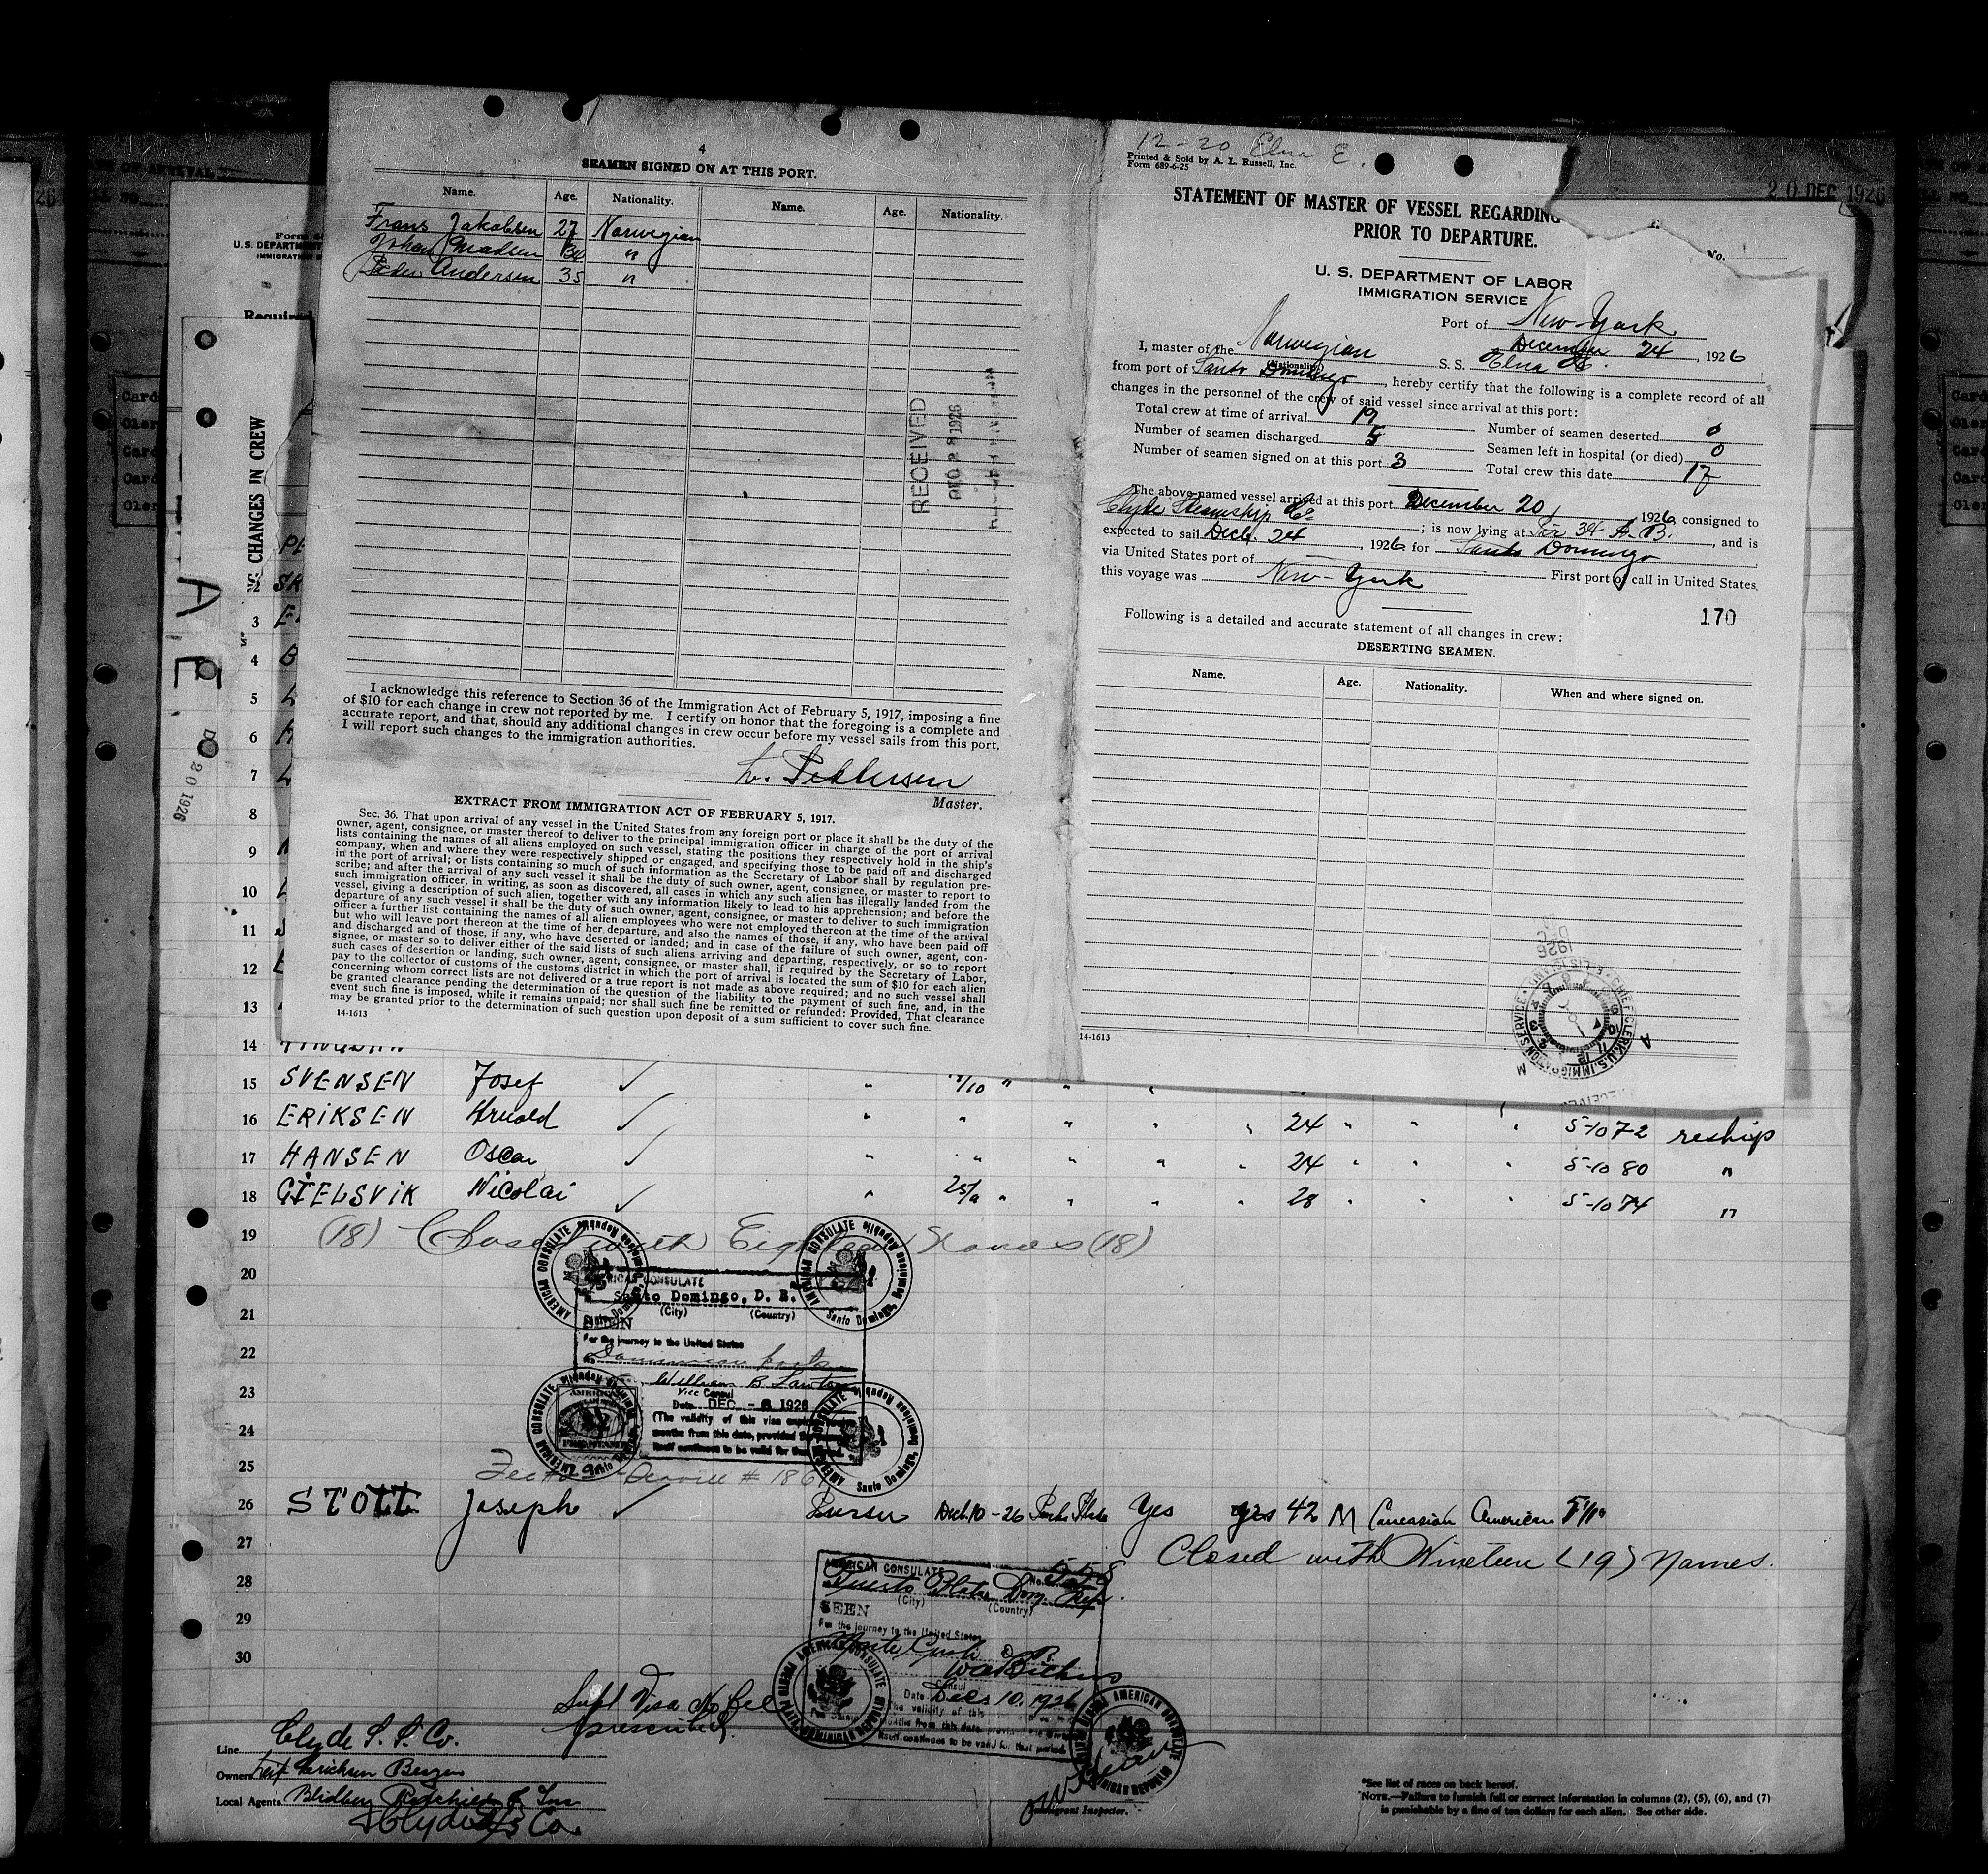 4
SEAMEN SIGNED ON AT THIS PORT.
Name. Age. Nationality. Name. Age. Nationality.
Frans Jakobsen 27 Norwegian
Johan Madsen 34 "
Peder Andersen 35 "
RECEIVED
DEC 28 1926
I acknowledge this reference to Section 36 of the Immigration Act of February 5, 1917, imposing a fine
of $10 for each change in crew not reported by me. I certify on honor that the foregoing is a complete and
accurate report, and that, should any additional changes in crew occur before my vessel sails from this port,
I will report such changes to the immigration authorities.
Master.
EXTRACT FROM IMMIGRATION ACT OF FEBRUARY 5, 1917.
Sec. 36. That upon arrival of any vessel in the United States from any foreign port or place it shall be the duty of the
owner, agent, consignee, or master thereof to deliver to the principal immigration officer in charge of the port of arrival
lists containing the names of all aliens employed on such vessel, stating the positions they respectively hold in the ship's
company, when and where they were respectively shipped or engaged, and specifying those to be paid off and discharged
in the port of arrival; or lists containing so much of such information as the Secretary of Labor shall by regulation pre-
scribe; and after the arrival of any such vessel it shall be the duty of such owner, agent, consignee, or master to report to
such immigration officer, in writing, as soon as discovered, all cases in which any such alien has illegally landed from the
vessel, giving a description of such alien, together with any information likely to lead to his apprehension; and before the
departure of any such vessel it shall be the duty of such owner, agent, consignee, or master to deliver to such immigration
officer a further list containing the names of all alien employees who were not employed thereon at the time of the arrival
but who will leave port thereon at the time of her departure, and also the names of those, if any, who have been paid off
and discharged and of those, if any, who have deserted or landed; and in case of the failure of such owner, agent, con-
signee, or master so to deliver either of the said lists of such aliens arriving and departing, respectively, or so to report
such cases of desertion or landing, such owner, agent, consignee, or master shall, if required by the Secretary of Labor,
pay to the collector of customs of the customs district in which the port of arrival is located the sum of $10 for each alien
concerning whom correct lists are not delivered or a true report is not made as above required; and no such vessel shall
be granted clearance pending the determination of the question of the liability to the payment of such fine, and, in the
event such fine is imposed, while it remains unpaid; nor shall such fine be remitted or refunded: Provided, That clearance
may be granted prior to the determination of such question upon deposit of a sum sufficient to cover such fine.
14-1613
12-20 Elna E.
Printed & Sold by A. L. Russell, Inc.
Form 689-6-25
20 DEC 1926
STATEMENT OF MASTER OF VESSEL REGARDING
PRIOR TO DEPARTURE.
No.
U. S. DEPARTMENT OF LABOR
IMMIGRATION SERVICE
Port of New-York
December 24, 1926
I, master of the Norwegian S. S. Elna E.
(Nationality)
from port of Santo Domingo, hereby certify that the following is a complete record of all
changes in the personnel of the crew of said vessel since arrival at this port:
Total crew at time of arrival 19 Number of seamen deserted 0
Number of seamen discharged 5 Seamen left in hospital (or died) 0
Number of seamen signed on at this port 3 Total crew this date 17
The above-named vessel arrived at this port December 20, 1926, consigned to
Clyde Steamship Co ; is now lying at Pier 34 A.B., and is
expected to sail Decb. 24, 1926, for Santo Domingo
via United States port of First port of call in United States,
this voyage was New-York
170
Following is a detailed and accurate statement of all changes in crew:
DESERTING SEAMEN.
Name. Age. Nationality. When and where signed on.
14-1613
U. S. DEPARTMENT
Required
CHANGES IN CREW
20 1926
2
3
4
5
6
7
8
9
10
11
12
13
14
15 SVENSEN Josef ✓
16 ERIKSEN Arnold ✓ " " " " " 24 " " " 5-10 72 reship
17 HANSEN Oscar ✓ " " " " " 24 " " " 5-10 80 "
18 GJELSVIK Nicolai ✓ " 25/9 " " " " 28 " " " 5-10 74 "
19 (18) Closed with Eighteen Names (18)
20
21
22
23
24
25
AMERICAN CONSULATE
Santo Domingo, D. R.
(City) (Country)
SEEN
For the journey to the United States
William B.
Vice Consul
Date DEC -8 1926
(The validity of this visa expires
months from this date, provided the
itself continues to be valid for that period.
26 STOTT Joseph ✓ Purser Decb. 10-26 Yes yes 42 M Caucasian American 5'11"
27 Closed with Nineteen (19) Names.
28
29
30
AMERICAN CONSULATE
No. 558
Puerto Plata, Dom. Rep.
(City) (Country)
SEEN
For the journey to the United States
Consul
Date Dec. 10. 1926
The validity of this
months from this date, provided the
itself continues to be valid for that period.
Supl Visa No fee
prescribed
Line Clyde S. S. Co.
Owners Leif Erichsen Bergen
Local Agents
Clyde S/S Co.
Immigrant Inspector.
*See list of races on back hereof.
NOTE.—Failure to furnish full or correct information in columns (2), (5), (6), and (7)
is punishable by a fine of ten dollars for each alien. See other side.